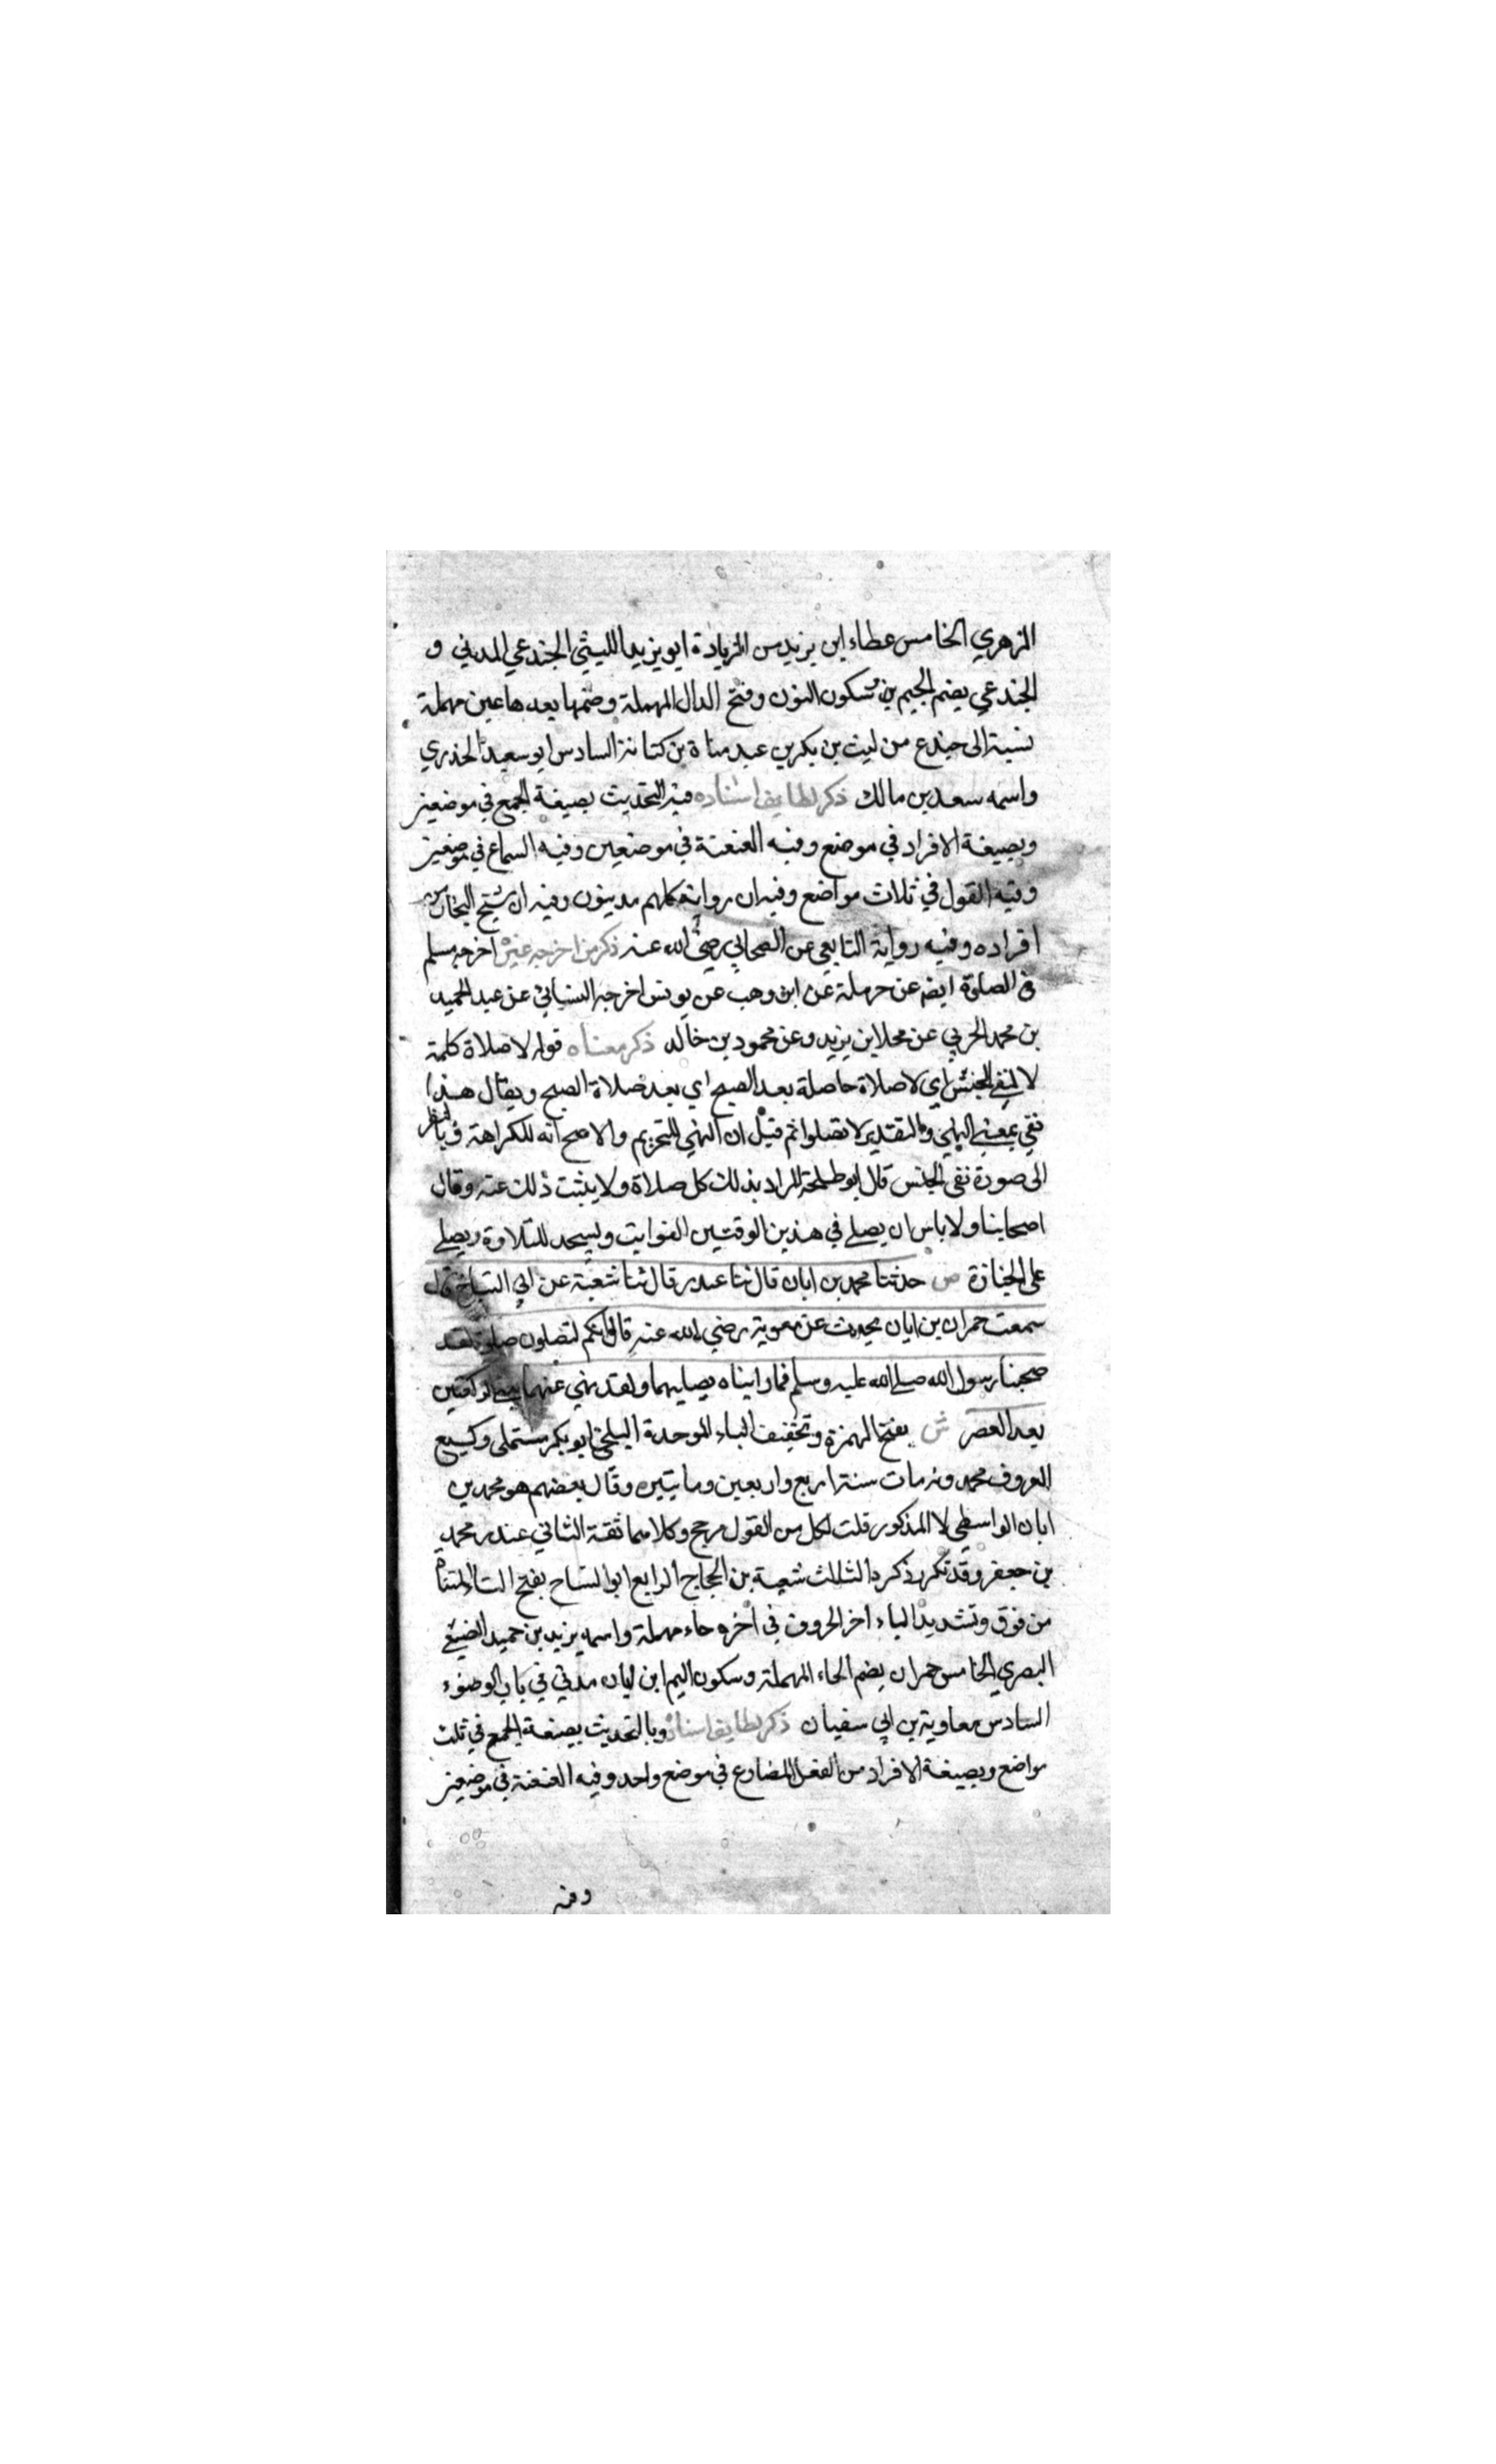 الزهري الخامس عطاء ابن يزيد من الزيادة ابو يزيد الليثي الجندعي المدني و
الجندعي بضم الجيم وسكون النون وفتح الدال المهملة وضمها بعدها عين مهملة
نسبة الى جندع من ليث بن بكر بن عبد مناة بن كنانة السادس ابو سعيد الخدري
واسمه سعد بن مالك ذكر لطايف اسناده فيه التحديث بصيغة الجمع في موضعين
وبصيغة الافراد في موضع وفيه العنعنة في موضعين وفيه السماع في موضعين
وفيه القول في ثلاث مواضع وفيه ان رواته كلهم مدينون وفيه ان شيخ البخاري من
افراده وفيه رواية التابعي عن الصحابي رضي الله عنه ذكر من اخرجه غيره اخرجه مسلم
في الصلوة ايضا عن حرملة عن ابن وهب عن يونس اخرجه النسائي عن عبد الحميد
بن محمد الحربي عن مخلد بن يزيد وعن محمود بن خالد ذكر معناه قوله لا صلاة كلمة
لا لنفي الجنس اي لا صلاة حاصلة بعد الصبح اي بعد صلاة الصبح ويقال هذا
نفي بمعنى النهي والتقدير لا تصلوا ثم قيل ان النهي للتحريم والاصح انه للكراهة وبالنظر
الى صورة نفي الجنس قال ابو طلحة المراد بذلك كل صلاة ولا يثبت ذلك عنه وقال
اصحابنا ولا باس ان يصلي في هذين الوقتين الفوايت ويسجد للتلاوة ويصلي
على الجنازة ص حدثنا محمد بن ابان قال ثنا غندر قال ثنا شعبة عن ابي التياح قال
سمعت حمران بن ابان يحدث عن معوية رضي الله عنه قال انكم لتصلون صلوة لقد
صحبنا رسول الله صلى الله عليه وسلم فما رايناه يصليهما ولقد نهي عنهما يعني الركعتين
بعد العصر ش بفتح الهمزة وتخفيف الباء الموحدة البلخي ابو بكر مستملي وكيع
المعروف محمدويه مات سنة اربع واربعين ومايتين وقال بعضهم هو محمد بن
ابان الواسطي لا المذكور قلت لكل من القول مرجح وكلاهما ثقة الثاني غندر محمد
بن جعفر وقد تكرر ذكره الثالث شعبة بن الحجاج الرابع ابو التياح بفتح التاء المثناة
من فوق وتشديد الياء اخر الحروف في اخره حاء مهملة واسمه يزيد بن حميد الضبعي
البصري الخامس حمران بضم الحاء المهملة وسكون الميم ابن ابان مدني في باب الوضوء
السادس معاوية بن ابي سفيان ذكر لطايف اسناده وبالتحديث بصيغة الجمع في ثلث
مواضع وبصيغة الافراد من الفعل المضارع في موضع واحد وفيه العنعنة في موضعين
وفيه